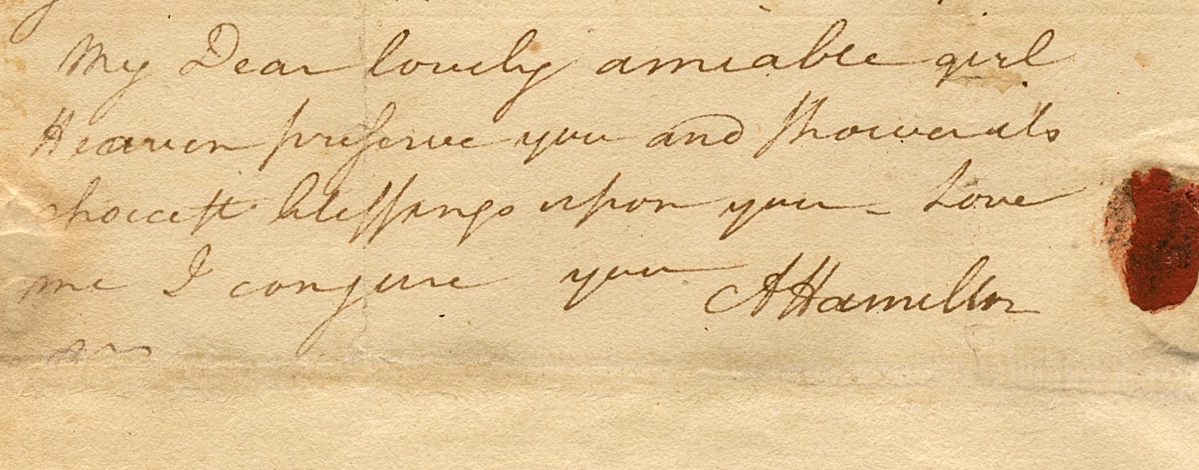 My Dear lovely amiable girl
Heaven preserve you and shower its
choicest blessings upon you – Love
me I conjure you AHamilton